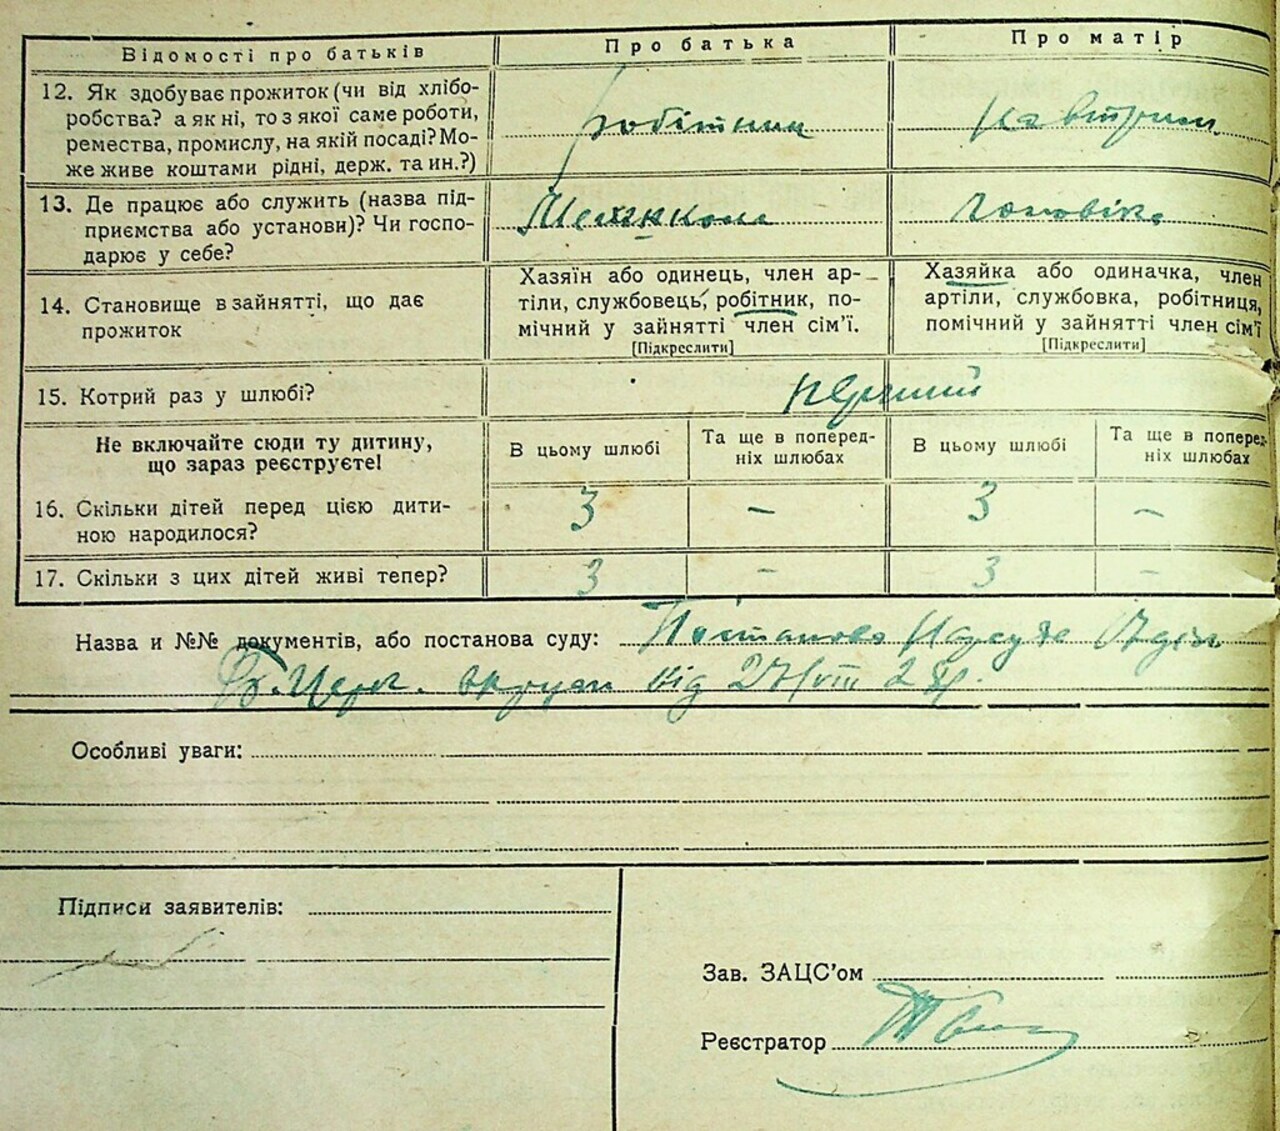 Відомості про батьків
Про батька
Про матір
12. Як здобуває прожиток (чи від хлібо-
робства? а як ні, то з якої саме роботи,
ремества, промислу, на якій посаді? Мо-
же живе коштами рідні, держ. та ин.?)
Робітник
На втрим
13. Де працює або служить (назва під-
приємства або установи)? Чи госпо-
дарює у себе?
чоловіка
14. Становище в зайнятті, що дає
прожиток
Хазяїн або одинець, член ар-
тіли, службовець, робітник, по-
мічний у зайнятті член сім'ї.
[Підкреслити]
Хазяйка або одиначка, член
артіли, службовка, робітниця,
помічний у зайнятті член сім'ї
[Підкреслити]
15. Котрий раз у шлюбі?
перший
Не включайте сюди ту дитину,
що зараз реєструєте!
В цьому шлюбі
Та ще в поперед-
ніх шлюбах
В цьому шлюбі
Та ще в поперед-
ніх шлюбах
16. Скільки дітей перед цією дити-
ною народилося?
3 – 3 –
17. Скільки з цих дітей живі тепер?
3 – 3 –
Назва и №№ документів, або постанова суду: Постанова Нарсуда
Б.Церк. округи від 27/VIII
Особливі уваги:
Підписи заявителів:
Зав. ЗАЦС'ом
Реєстратор